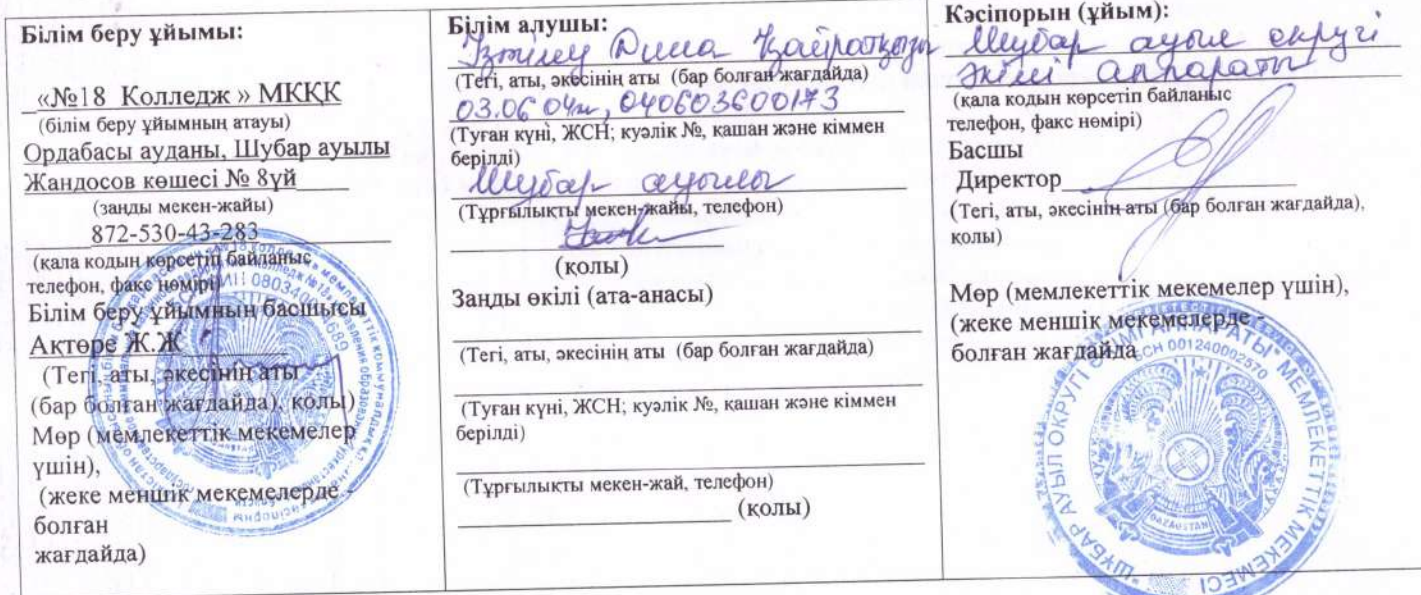 Білім беру ұйымы:
«№18 Колледж » МКҚК
(білім беру ұйымның атауы)
Ордабасы ауданы, Шубар ауылы
Жандосов көшесі № 8үй
(заңды мекен-жайы)
872-530-43-283
(қала кодын көрсетіп байланыс
телефон, факс нөмірі)
Білім беру ұйымның басшысы
Ақтөре Ж.Ж
(Тегі, аты, әкесінің аты
(бар болған жағдайда), қолы)
Мөр (мемлекеттік мекемелер
үшін),
(жеке меншік мекемелерде -
болған
жағдайда)
Білім алушы:
Қайратқызы
(Тегі, аты, әкесінің аты (бар болған жағдайда)
03.06.04ж, 040603600173
(Туған күні, ЖСН; куәлік №, қашан және кіммен
берілді)
Шубар ауылы
(Тұрғылықты мекен-жайы, телефон)
(қолы)
Заңды өкілі (ата-анасы)
(Тегі, аты, әкесінің аты (бар болған жағдайда)
(Туған күні, ЖСН; куәлік №, қашан және кіммен
берілді)
(Тұрғылықты мекен-жай, телефон)
(қолы)
Кәсіпорын (ұйым):
Шубар ауыл округі
әкімі аппараты
(қала кодын көрсетіп байланыс
телефон, факс нөмірі)
Басшы
Директор
(Тегі, аты, әкесінің аты (бар болған жағдайда),
қолы)
Мөр (мемлекеттік мекемелер үшін),
(жеке меншік мекемелерде -
болған жағдайда
"ШҰБАР АУЫЛ ОКРУГІ ӘКІМІ АППАРАТЫ" МЕМЛЕКЕТТІК МЕКЕМЕСІ
БСН 001240002570
QAZAQSTAN